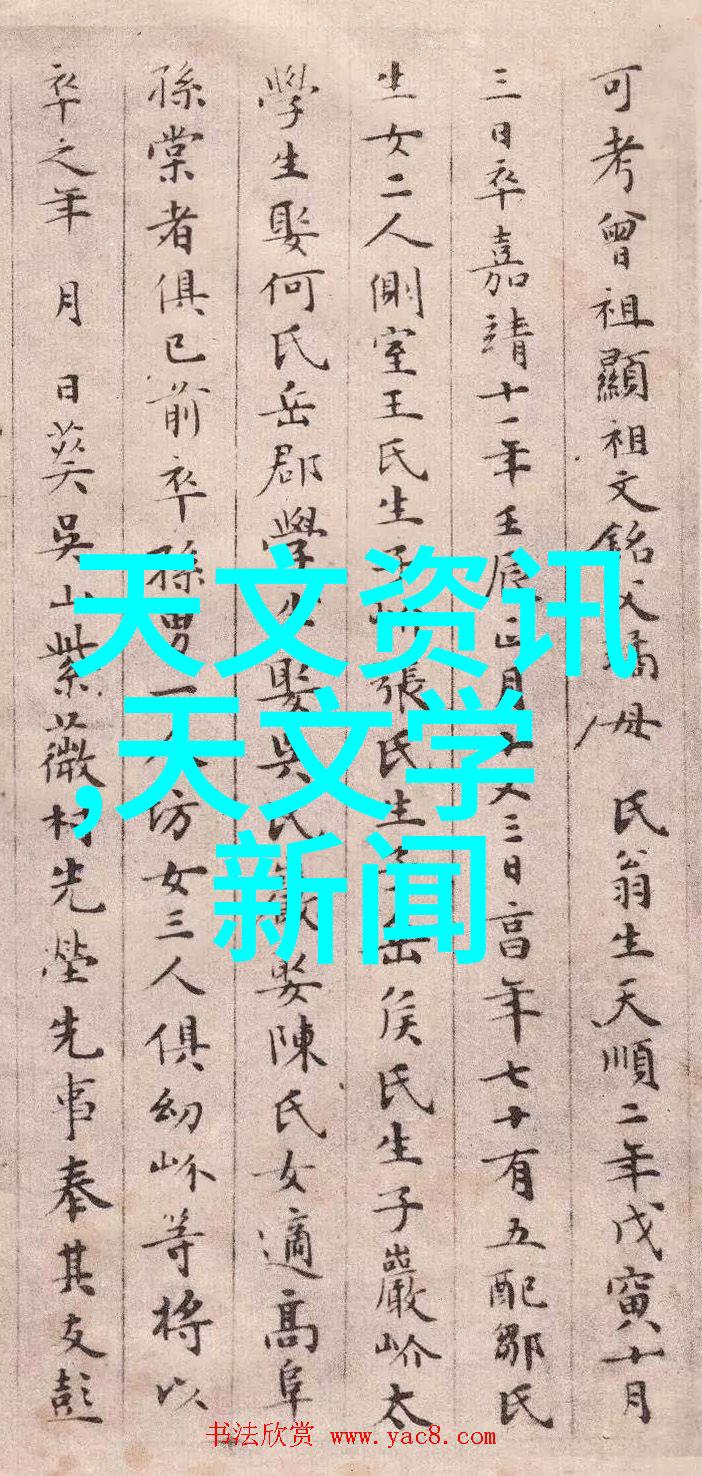 可考曾祖顯祖文銘父璚母 氏翁生天順二年戊寅十月
三日卒嘉靖十一年壬辰正月十又三日享年七十有五配鄒氏
生女二人側室王氏生子岎張氏生子岳侯氏生子巖岎太
學生娶何氏岳郡學生娶吳氏巖娶陳氏女適高阜
孫棠者俱已前卒孫男一人坊女三人俱幼岎等將以
卒之年 月 日葬吳山紫薇村先塋先事奉其友彭
天文资讯
,天文学
新闻
书法欣赏 www.yac8.com